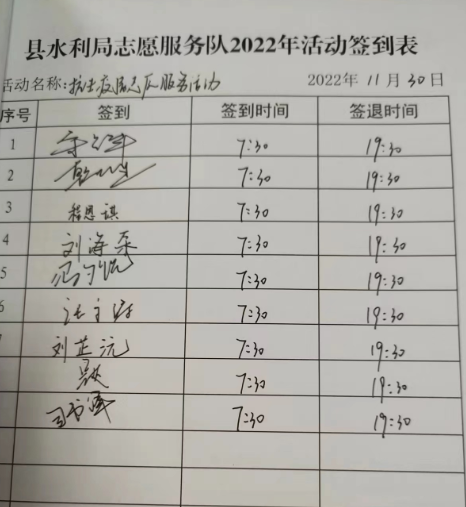 县水利局志愿服务队2022年活动签到表
活动名称:抗击疫情志愿服务活动 2022年11月30日
序号 签到 签到时间 签退时间
1 7:30 19:30
2 7:30 19:30
3 程恩祺 7:30 19:30
4 刘海泉 7:30 19:30
5 7:30 19:30
6 7:30 19:30
刘芷沅 7:30 19:30
7:30 19:30
7:30 19:30